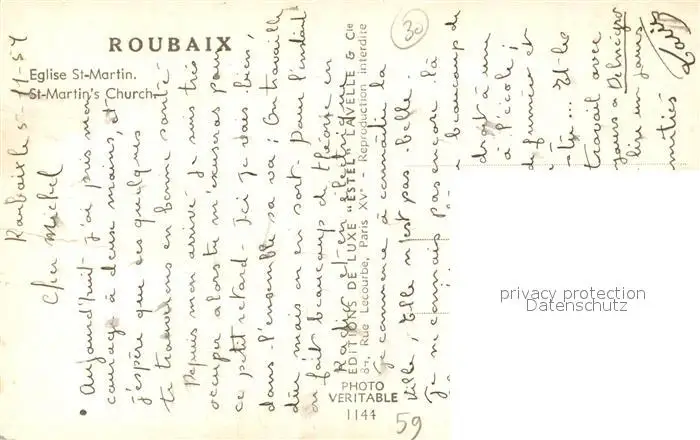 ROUBAIX
Eglise St-Martin.
St-Martin's Church.
30
Roubaix le 5-11-59
Cher Michel
Aujourd'huit j'ai pris mon
courage à deux mains, et
j'espère que ces quelques
te trouverons en bonne santé
Depuis mon arrivé je suis très
occuper alors tu m'excuseras pour
ce petit retard. Ici je vais bien,
dans l'ensemble sa va; On travaille
dur mais on en sort. pour l'instant
on fait beaucoup de théorie en
Radio et en électricité
je commence à connaître la
ville, Elle n'est pas belle.
je ne connais pas encore là
beaucoup de
droit à une
à l'école;
de fumées et
tu... Et-le
travail avec
jours à
lire un jours
mitiés
EDITIONS DE LUXE "ESTEL" LAVELLE & Cie
84, Rue Lecourbe, Paris XV° - Reproduction interdite
PHOTO
VERITABLE
1144
59
privacy protection
Datenschutz